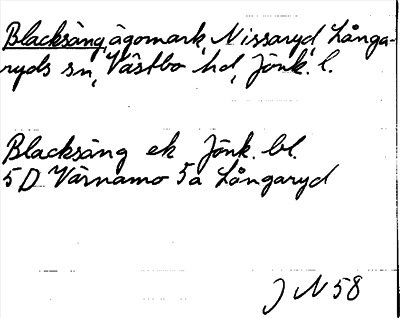 Blacksäng, ägomark, Nissaryd, Långa-
ryds sn, Västbo hd, Jönk. l.
Blacksäng ek Jönk. bl.
5D Värnamo 5a Långaryd
J N 58